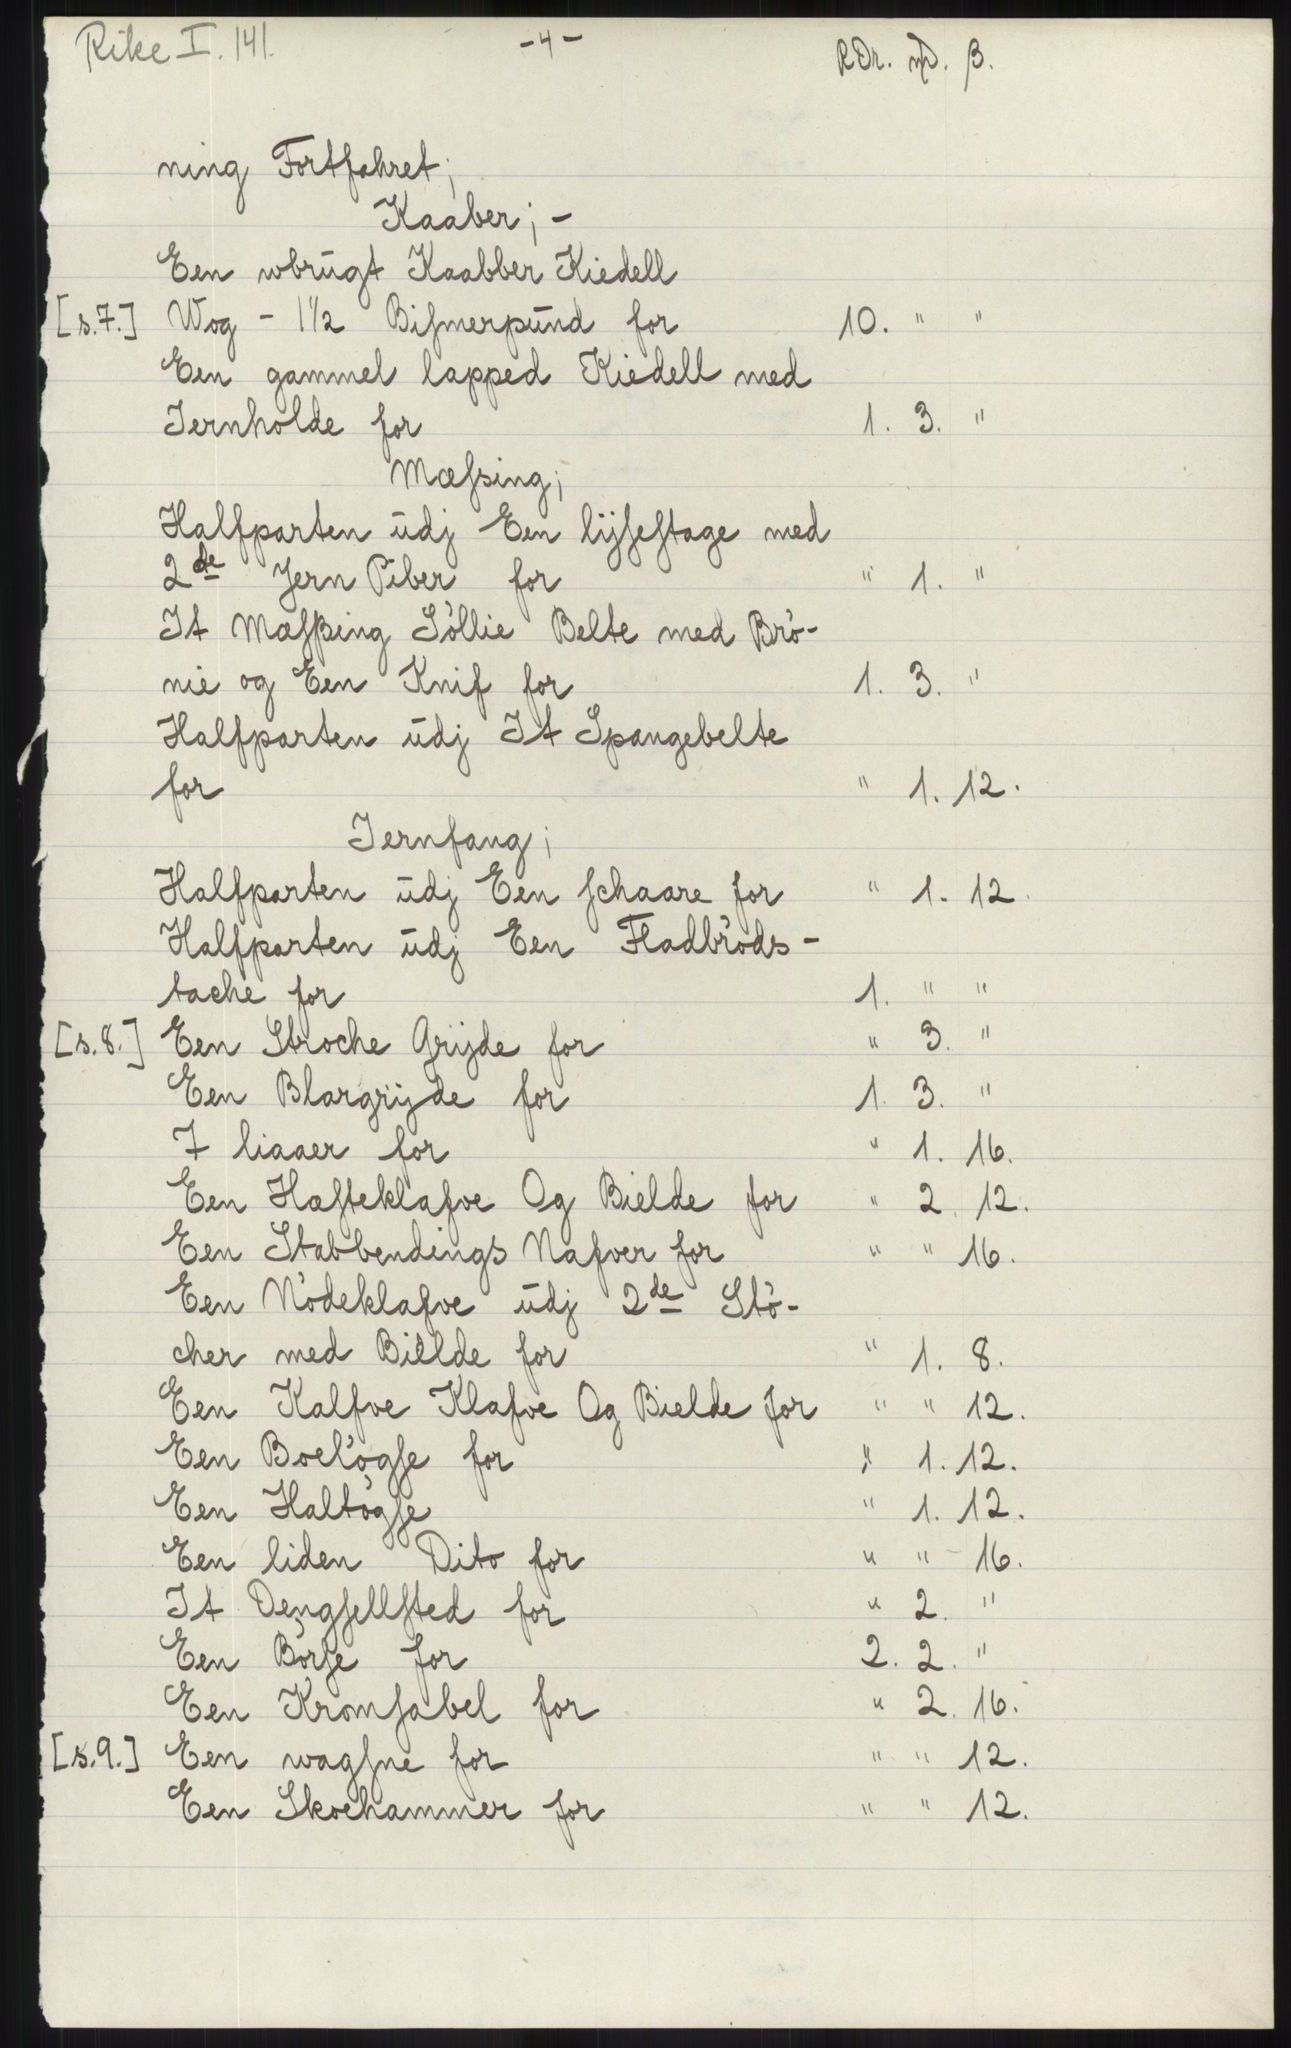 Rike I. 141. -4- RDr. mD. β.
ning Fortfahret;
Kaaber; -
Een wbrŭgt Kaabber Kiedell
[s.7.] Wog - 1½ Bismerpŭnd for 10. " "
Een gammel lapped Kiedell med
Iernholde for 1. 3. "
Mæssing;
Halfparten ŭdj Een lijsestage med
2de Jern Piber for " 1. "
It Mæssing Söllie Belte med Brö-
nie og Een Knif for 1. 3. "
Halfparten ŭdj It Spangebelte
for " 1. 12.
Iernfang;
Halfparten ŭdj Een schaare for " 1. 12.
Halfparten ŭdj Een Fladbröds-
tache for 1. " "
[s.8.] Een Stroche Grijde for " 3. "
Een Blargrijde for 1. 3. "
7 liaaer for " 1. 16.
Een Hæsteklafve Og Bielde for " 2. 12.
Een Stabbendings Nafver for " " 16.
Een Nödeklafve ŭdj 2de Stö-
cher med Biellde for " 1. 8.
Een Kalfve Klafve Og Bielde for " " 12.
Een Boelögse for " 1. 12.
Een Haltögse " 1. 12.
Een liden Dito for " " 16.
It Dengsellsted for " 2. "
Een Börse for 2. 2. "
Een Kromsabel for " 2. 16.
[s.9.] Een wagsne for " " 12.
Een Skoehammer for " " 12.